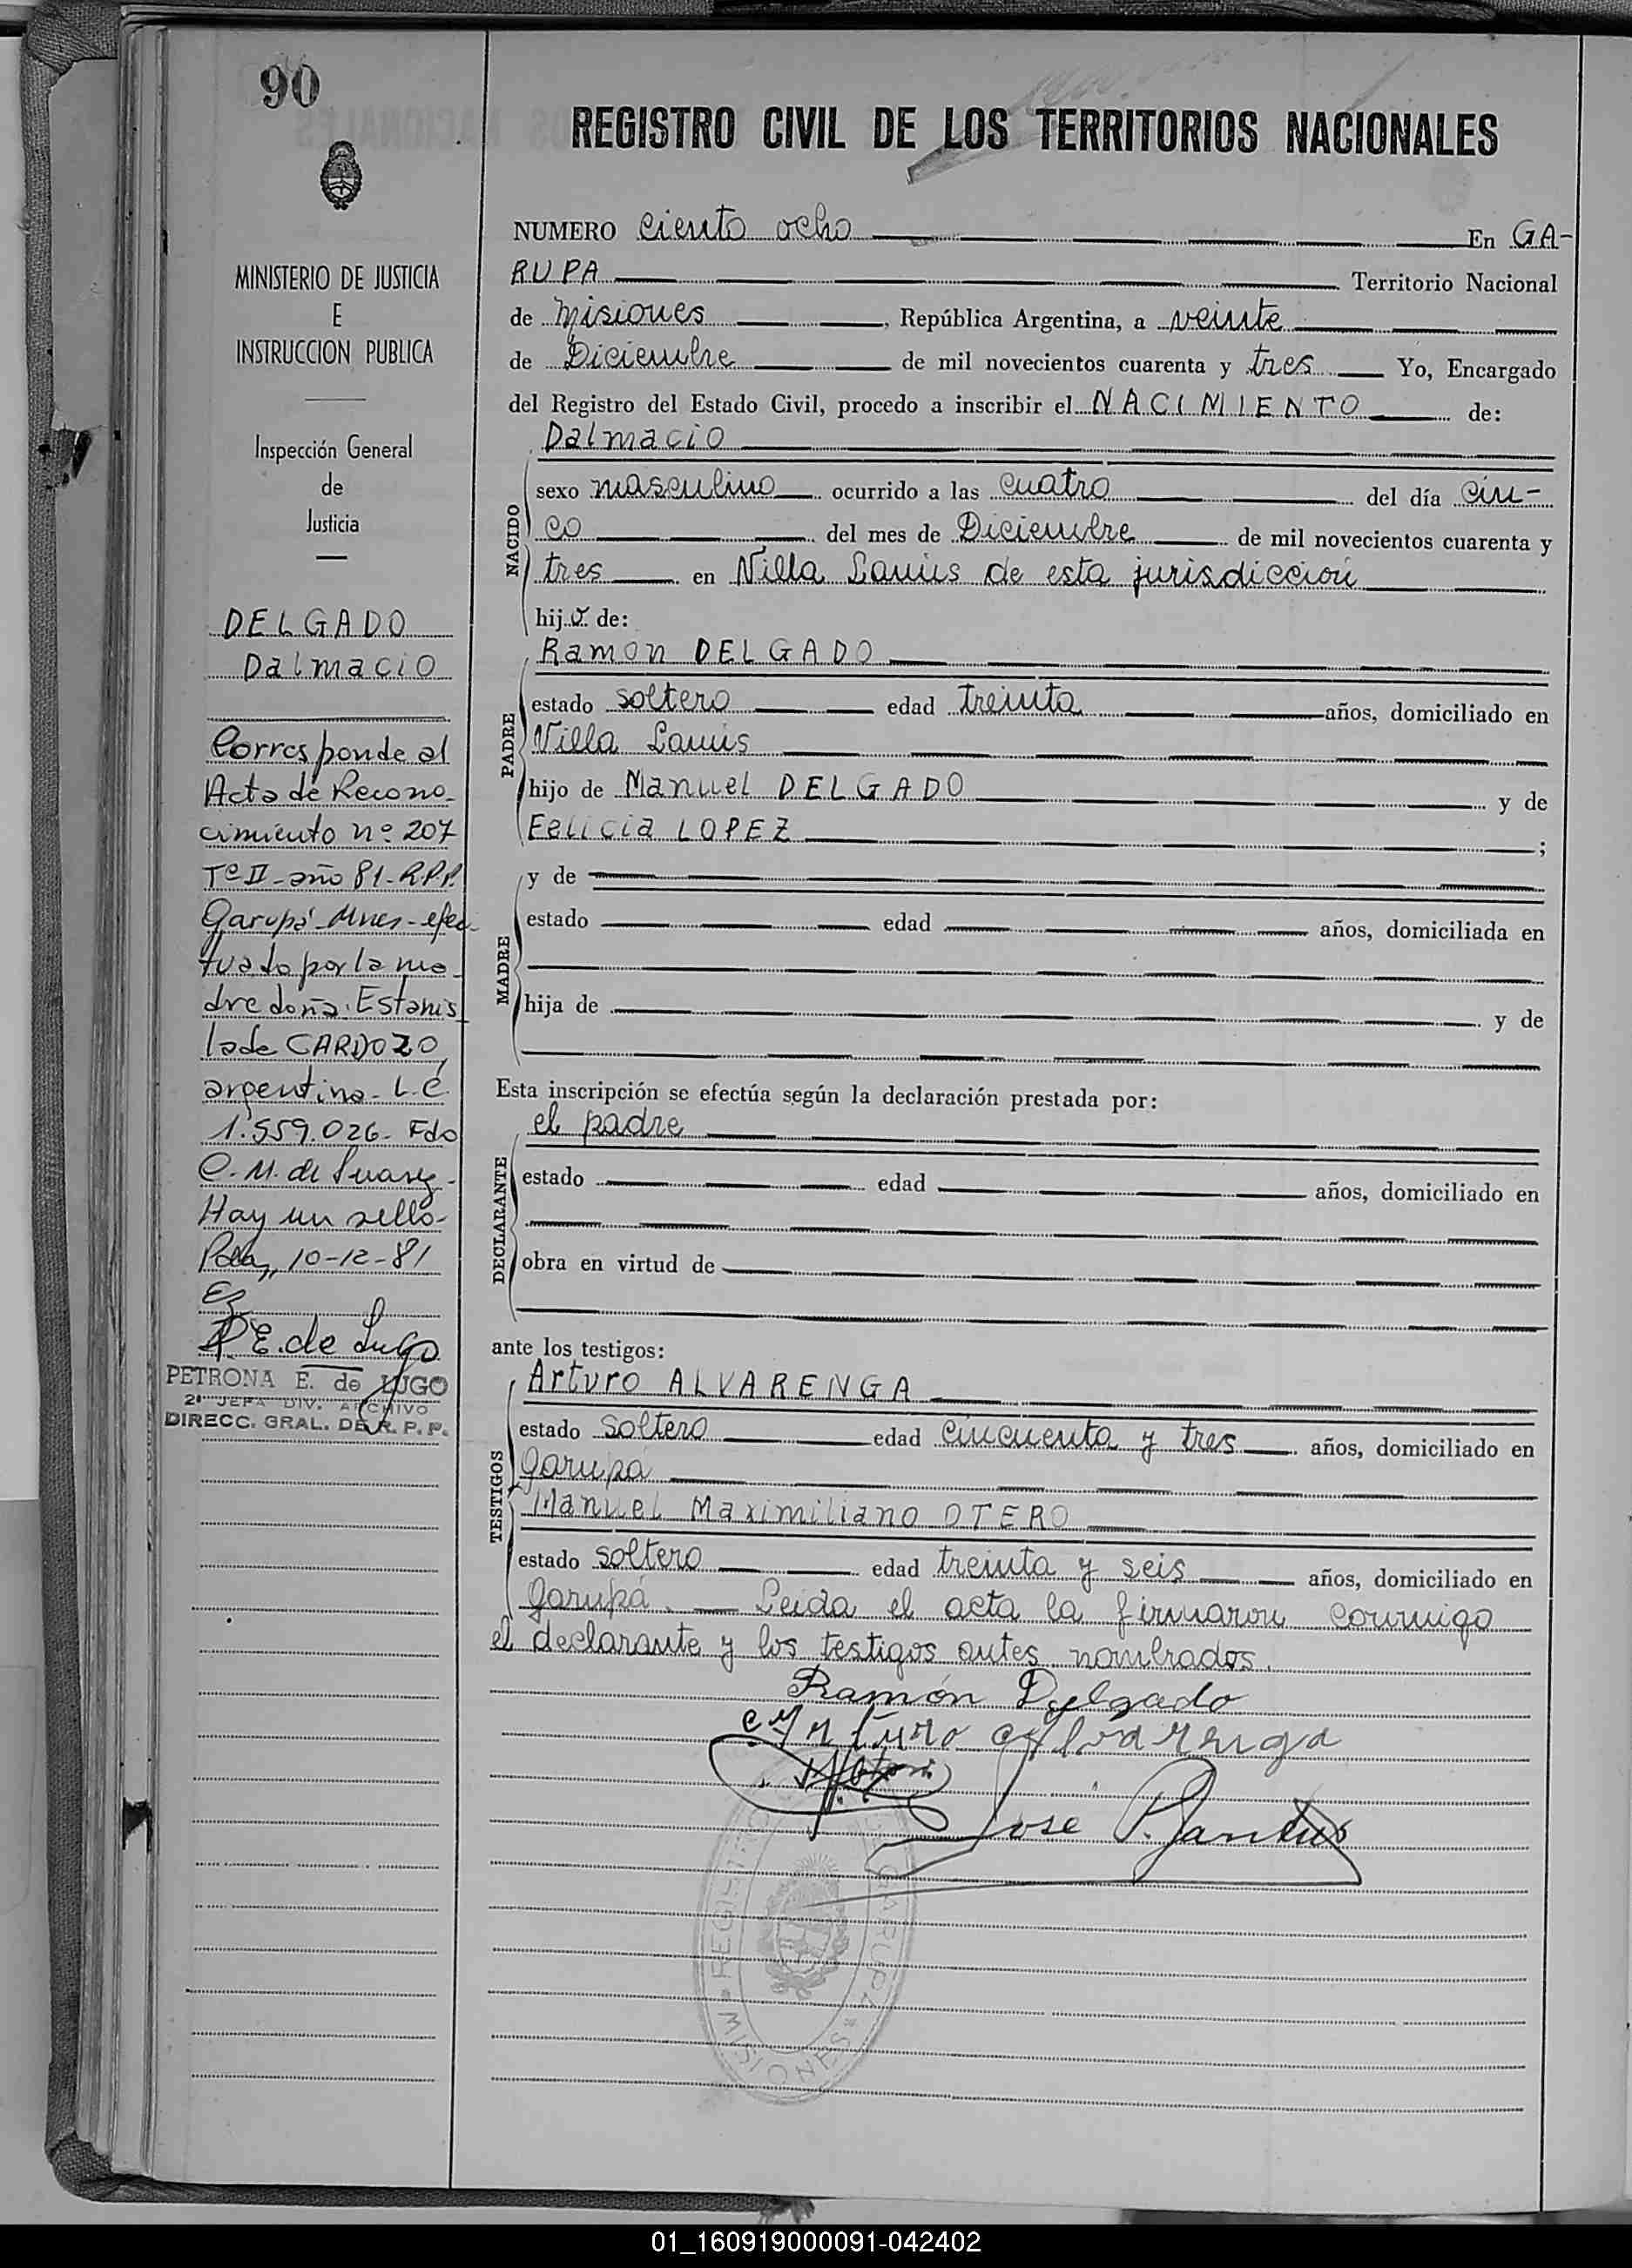 90
MINISTERIO DE JUSTICIA
E
INSTRUCCION PUBLICA
Inspección General
de
Justicia
DELGADO
Dalmacio
Corresponde al
Acta de Recono-
cimiento nº 207
Tº II - año 81 - R.P.P.
Garupá - Mnes - efec-
tuado por la ma-
dre doña: Estanis
lada CARDOZO,
argentina - L.C.
1.559.026 - Fdo
C. M. de Suarez -
Hay un sello -
Pdas, 10-12-81
P. E. de Lugo
PETRONA E. de LUGO
2ª JEFA DIV. ARCHIVO
DIRECC. GRAL. DE R. P. P.
REGISTRO CIVIL DE LOS TERRITORIOS NACIONALES
NUMERO ciento ocho En GA-
RUPA Territorio Nacional
de Misiones, República Argentina, a veinte
de Diciembre de mil novecientos cuarenta y tres Yo, Encargado
del Registro del Estado Civil, procedo a inscribir el NACIMIENTO de:
Dalmacio
NACIDO
sexo masculino ocurrido a las cuatro del día cin-
co del mes de Diciembre de mil novecientos cuarenta y
tres en Villa Lanús de esta jurisdicción
hijo de:
PADRE
Ramón DELGADO
estado soltero edad treinta años, domiciliado en
Villa Lanús
hijo de Manuel DELGADO y de
Felicia LOPEZ ;
MADRE
y de
estado edad años, domiciliada en
hija de y de
Esta inscripción se efectúa según la declaración prestada por:
el padre
DECLARANTE
estado edad años, domiciliado en
obra en virtud de
ante los testigos:
TESTIGOS
Arturo ALVARENGA
estado soltero edad cincuenta y tres años, domiciliado en
Garupa
Manuel Maximiliano OTERO
estado soltero edad treinta y seis años, domiciliado en
Garupá. Leida el acta la firmaron conmigo
el declarante y los testigos antes nombrados.
Ramón Delgado
Arturo Alvarenga
José P.
REGISTRO CIVIL GARUPA MISIONES
01_160919000091-042402